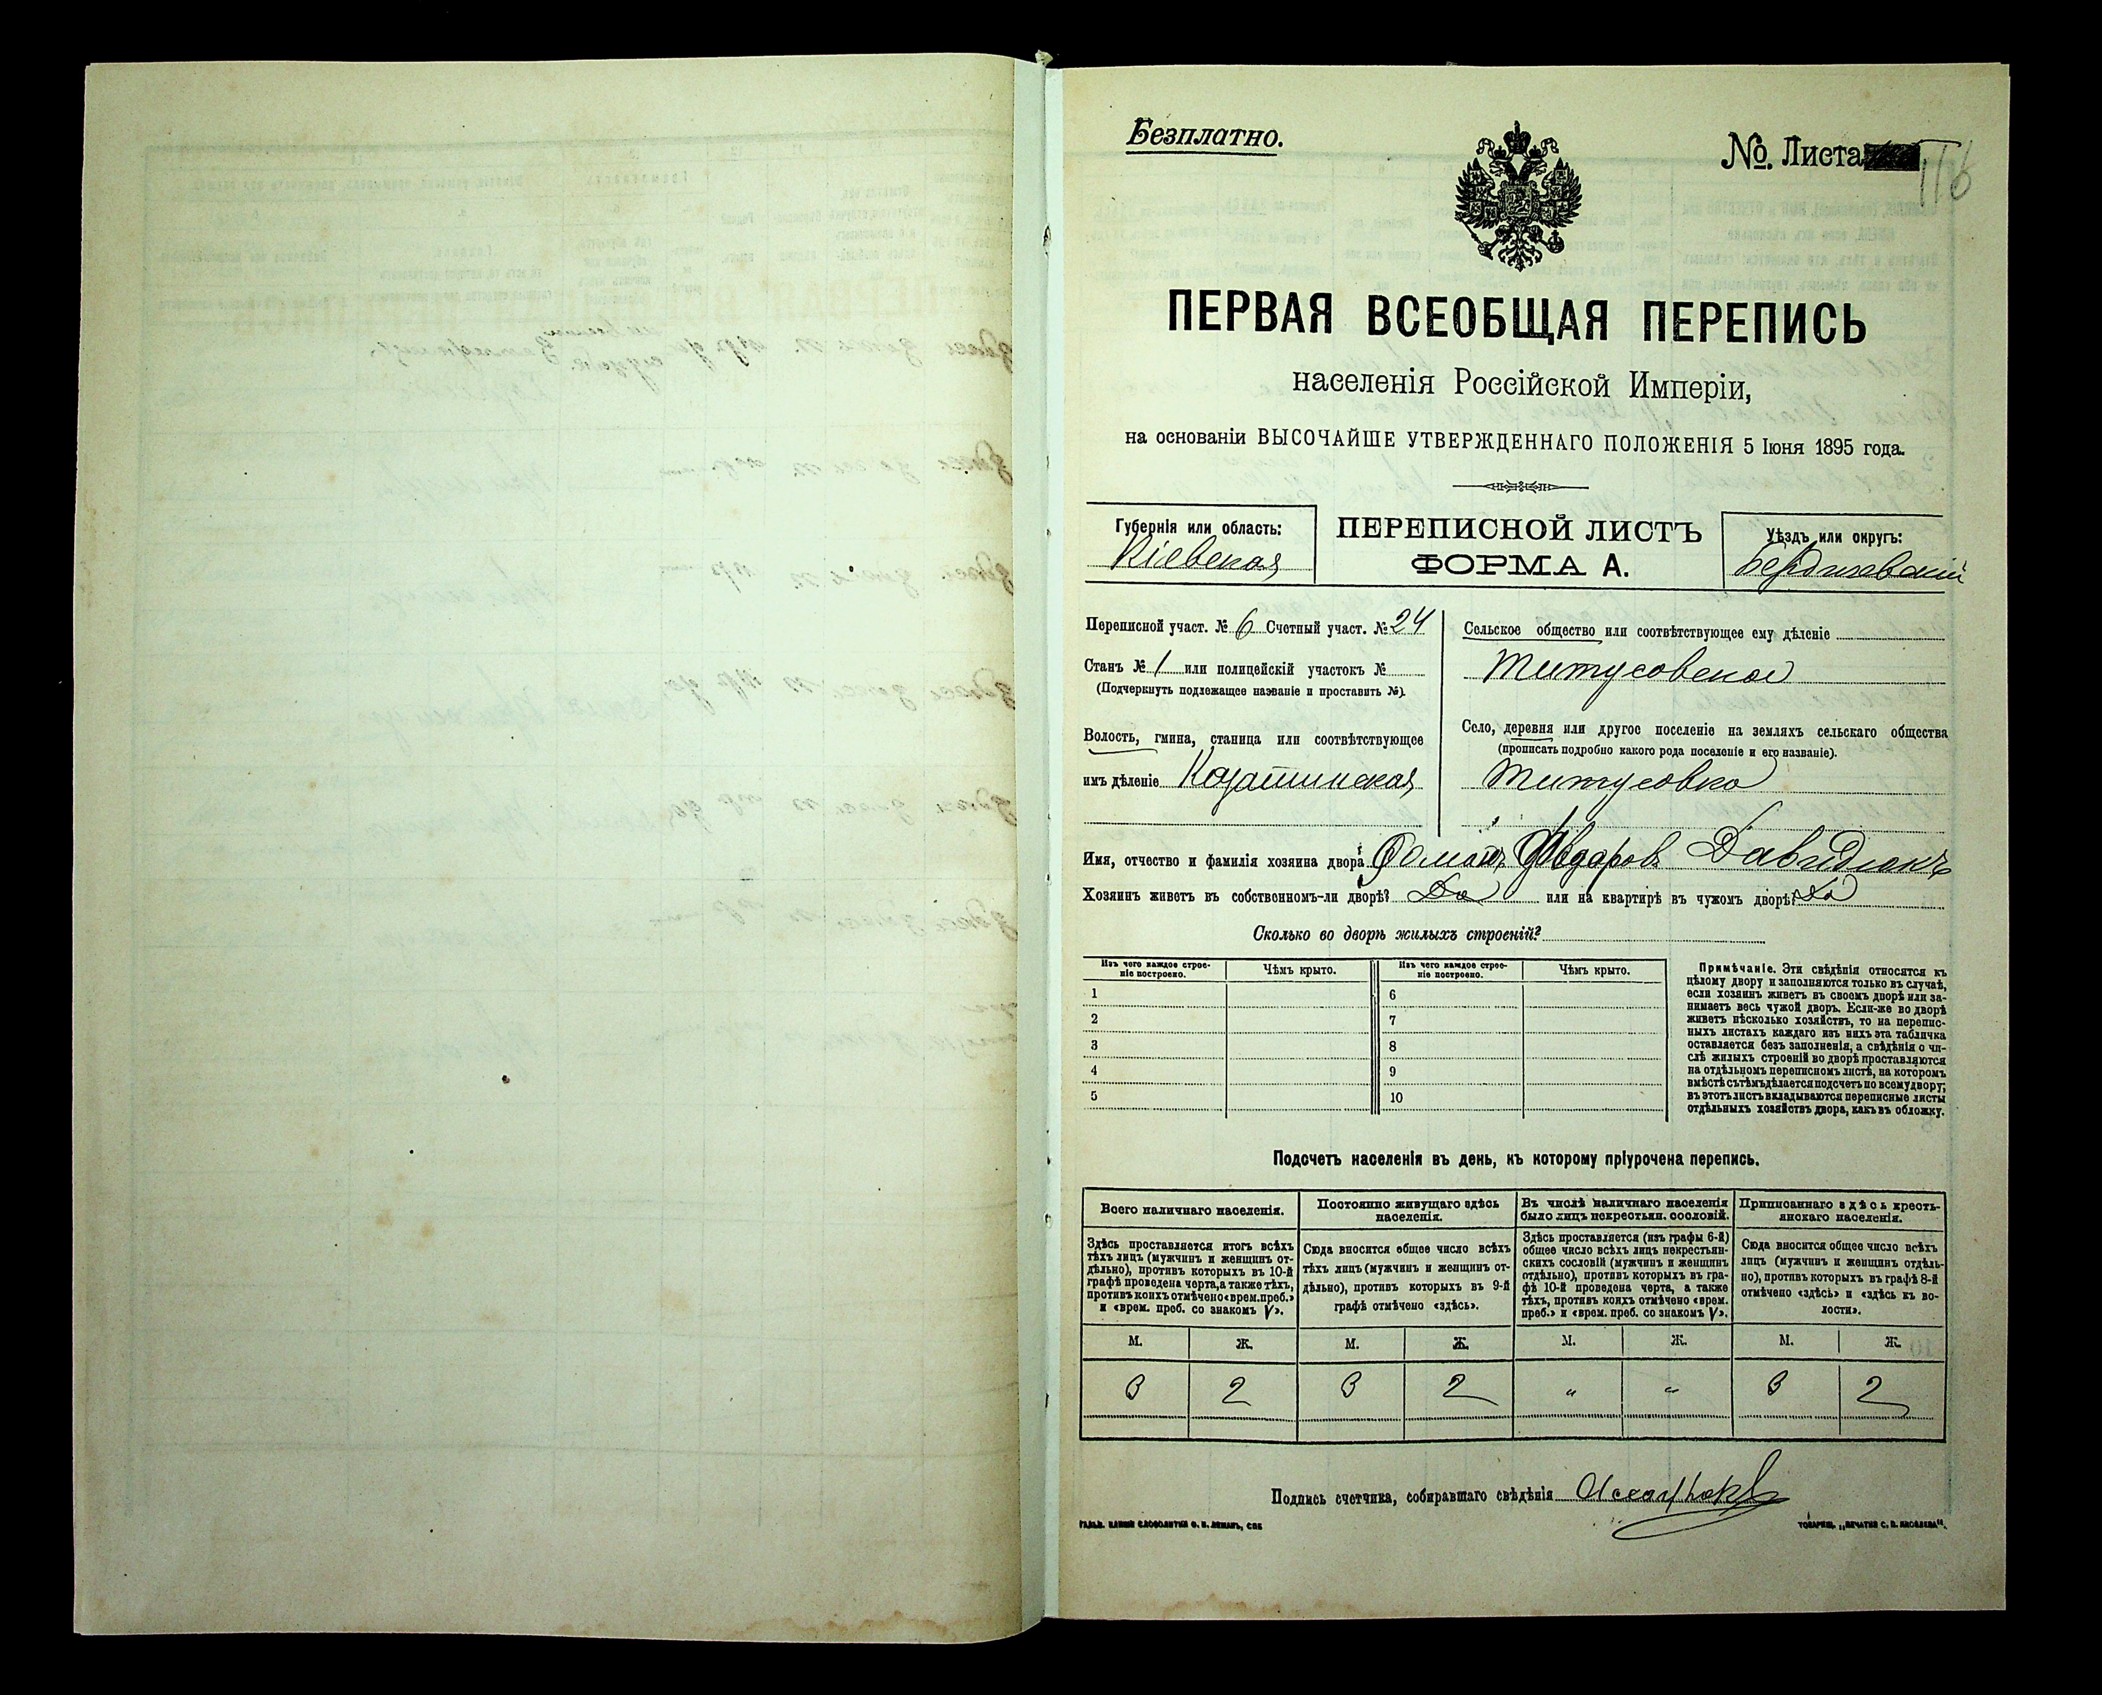 Безплатно.
№. Листа 116
ПЕРВАЯ ВСЕОБЩАЯ ПЕРЕПИСЬ
населенія Россійской Имперіи,
на основаніи ВЫСОЧАЙШЕ УТВЕРЖДЕННАГО ПОЛОЖЕНІЯ 5 Іюня 1895 года.
Губернія или область:
Кіевская
ПЕРЕПИСНОЙ ЛИСТЪ
ФОРМА А.
Уѣздъ или округъ:
Бердичевскій
Переписной участ. № 6 Счетный участ. № 24
Станъ № 1 или полицейскій участокъ №
(Подчеркнуть подлежащее названіе и проставить №).
Волость, гмина, станица или соотвѣтствующее
имъ дѣленіе Козатинская
Сельское общество или соотвѣтствующее ему дѣленіе
Титусовское
Село, деревня или другое поселеніе на земляхъ сельскаго общества
(прописать подробно какого рода поселеніе и его названіе).
Титусовка
Имя, отчество и фамилія хозяина двора Романъ Федоровъ Давидюкъ
Хозяинъ живетъ въ собственномъ-ли дворѣ? Да или на квартирѣ въ чужомъ дворѣ? Да
Сколько во дворѣ жилыхъ строеній?
Изъ чего каждое строе-
ніе построено.
Чѣмъ крыто.
Изъ чего каждое строе-
ніе построено.
Чѣмъ крыто.
1 6
2 7
3 8
4 9
5 10
Примѣчаніе. Эти свѣдѣнія относятся къ
цѣлому двору и заполняются только въ случаѣ,
если хозяинъ живетъ въ своемъ дворѣ или за-
нимаетъ весь чужой дворъ. Если-же во дворѣ
живетъ нѣсколько хозяйствъ, то на перепис-
ныхъ листахъ каждаго изъ нихъ эта табличка
оставляется безъ заполненія, а свѣдѣнія о чи-
слѣ жилыхъ строеній во дворѣ проставляются
на отдѣльномъ переписномъ листѣ, на которомъ
вмѣстѣ съ тѣмъ дѣлается подсчетъ по всему двору;
въ этотъ листъ вкладываются переписные листы
отдѣльныхъ хозяйствъ двора, какъ въ обложку.
Подсчетъ населенія въ день, къ которому пріурочена перепись.
Всего наличнаго населенія.
Здѣсь проставляется итогъ всѣхъ
тѣхъ лицъ (мужчинъ и женщинъ от-
дѣльно), противъ которыхъ въ 10-й
графѣ проведена черта, а также тѣхъ,
противъ коихъ отмѣчено «врем. преб.»
и «врем. преб. со знакомъ V».
Постоянно живущаго здѣсь
населенія.
Сюда вносится общее число всѣхъ
тѣхъ лицъ (мужчинъ и женщинъ от-
дѣльно), противъ которыхъ въ 9-й
графѣ отмѣчено «здѣсь».
Въ числѣ наличнаго населенія
было лицъ некрестьян. сословій.
Здѣсь проставляется (изъ графы 6-й)
общее число всѣхъ лицъ некрестьян-
скихъ сословій (мужчинъ и женщинъ
отдѣльно), противъ которыхъ въ гра-
фѣ 10-й проведена черта, а также
тѣхъ, противъ коихъ отмѣчено «врем.
преб.» и «врем. преб. со знакомъ V».
Приписаннаго здѣсь кресть-
янскаго населенія.
Сюда вносится общее число всѣхъ
лицъ (мужчинъ и женщинъ отдѣль-
но), противъ которыхъ въ графѣ 8-й
отмѣчено «здѣсь» и «здѣсь къ во-
лости».
М. Ж. М. Ж. М. Ж. М. Ж.
3 2 3 2 " " 3 2
Подпись счетчика, собиравшаго свѣдѣнія
ТОВАРИЩ. „ПЕЧАТНЯ С. П. ЯКОВЛЕВА".